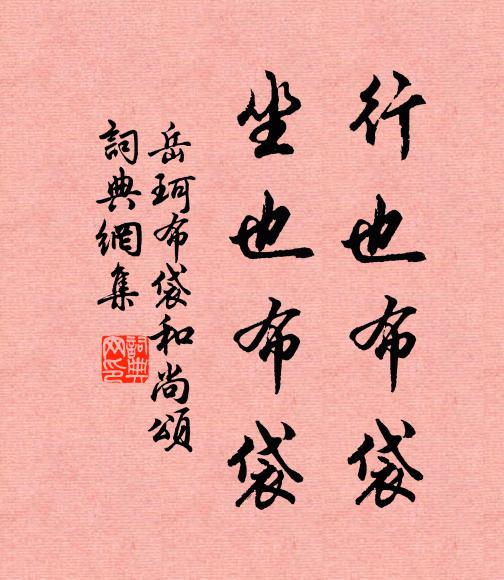 行也布袋
坐也布袋
岳珂布袋和尚頌
詞典網集
詞典網印